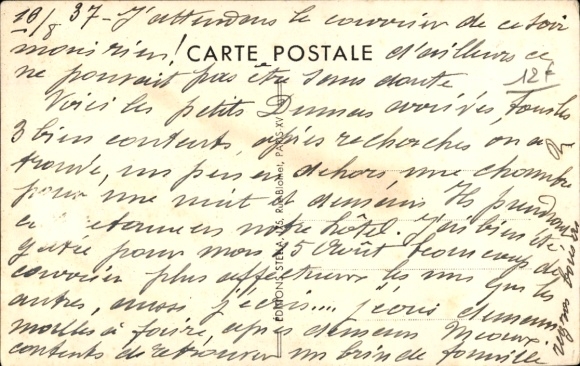 16/8 37 - J'attendais le courrier de ce soir
mais rien! CARTE POSTALE d'ailleurs ce
ne pouvait pas être sans doute
12F
Voici les petits Dumas arrivés, tous les
3 bien contents, après recherches on a
trouvé, un peu en dehors une chambre
pour une nuit et demain Ils prendront
notre hôtel. J'ai bien été
gâtée pour mon 15 Août beaucoup de
courrier plus affectueux les uns que les
autres, aussi j'écris.... j'écris demain
malles à faire, après demain
contents de retrouver un brin de famille
EDITIONS STELLA, 75, R. de PARIS XV